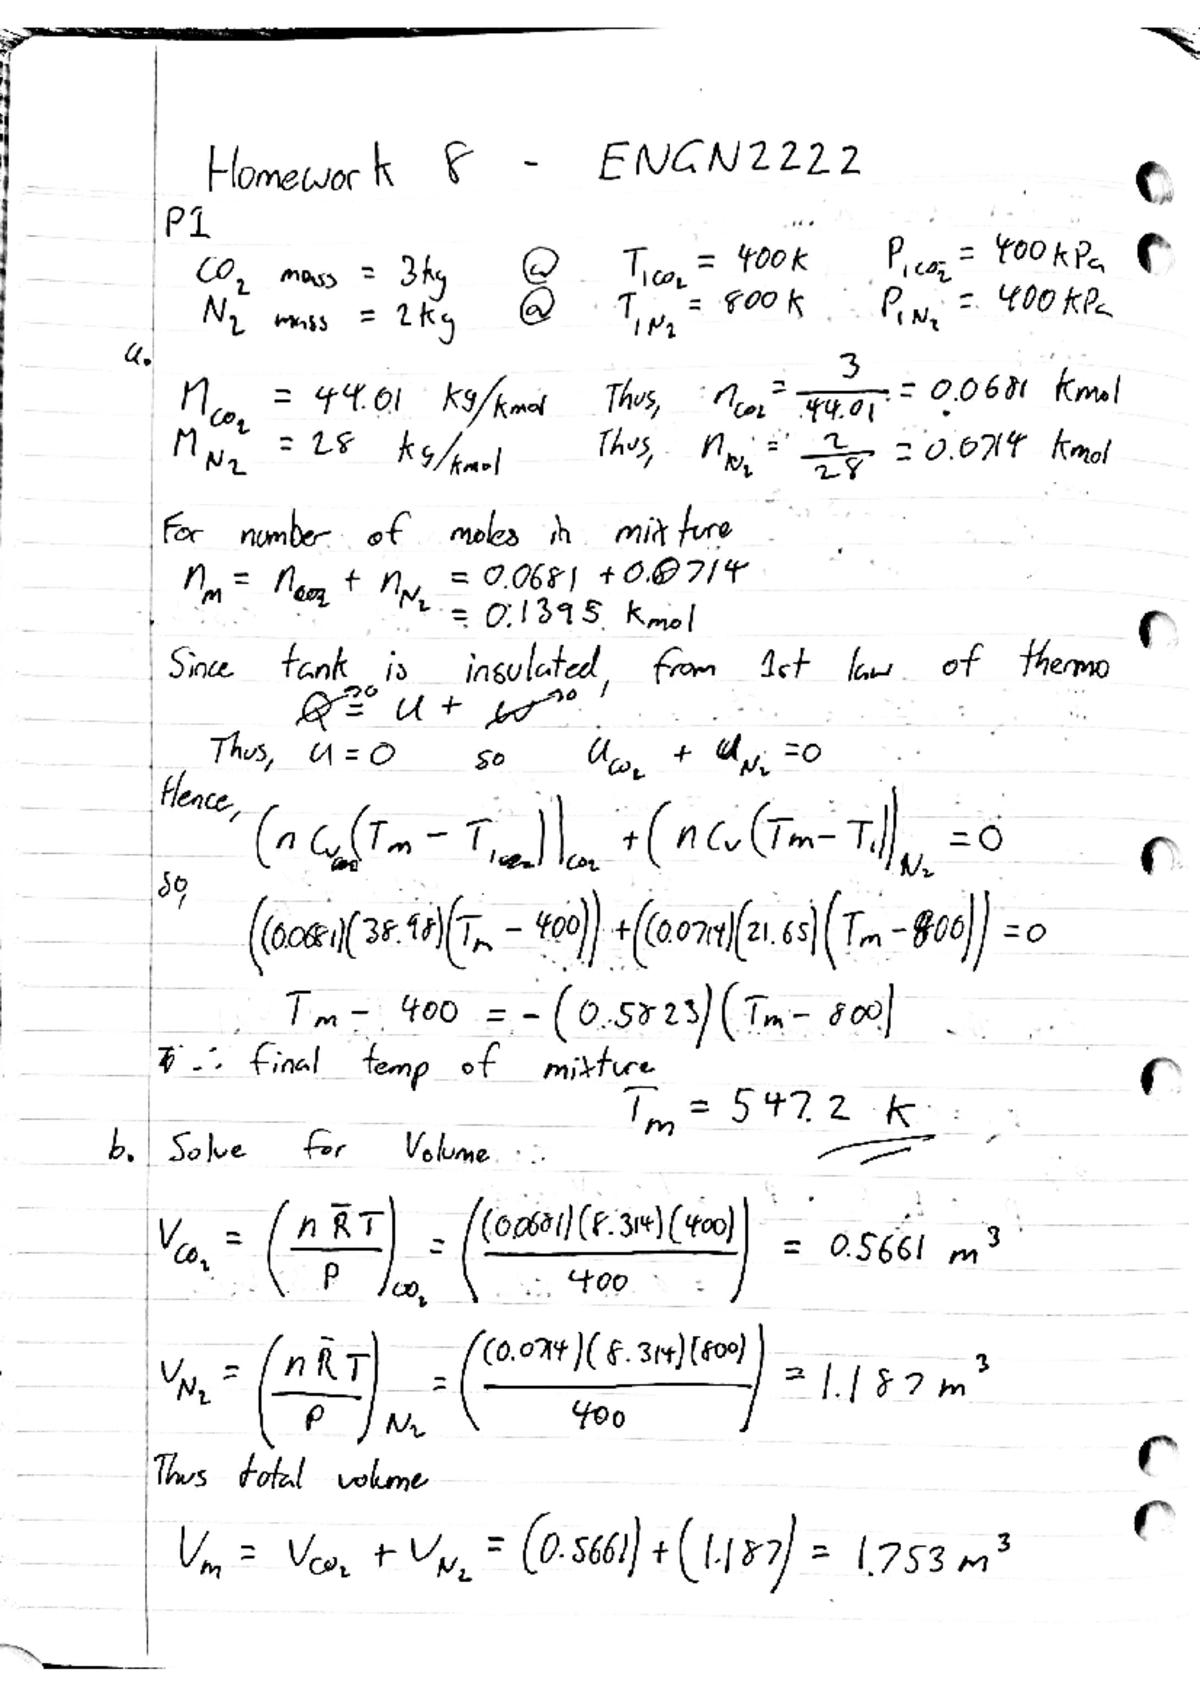 Homework 8 - ENGN2222
P1
CO₂ mass = 3kg @ T₁CO₂ = 400K P₁CO₂ = 400kPa
N₂ mass = 2kg @ T₁N₂ = 800K P₁N₂ = 400kPa
a.
M_CO₂ = 44.01 kg/kmol Thus, n_CO₂ = 3/44.01 = 0.0681 kmol
M_N₂ = 28 kg/kmol Thus, n_N₂ = 2/28 = 0.0714 kmol
For number of moles in mixture
n_m = n_CO₂ + n_N₂ = 0.0681 + 0.0714
= 0.1395 kmol
Since tank is insulated, from 1st law of thermo
Q→0 = U + W→0
Thus, U = 0 so U_CO₂ + U_N₂ = 0
Hence,
(n Cv (Tm - T₁))|CO₂ + (n Cv (Tm - T₁))|N₂ = 0
so,
((0.0681)(38.98)(Tm - 400)) + ((0.0714)(21.65)(Tm - 800)) = 0
Tm - 400 = -(0.5823)(Tm - 800)
∴ final temp of mixture
Tm = 547.2 K
b. Solve for Volume
V_CO₂ = (n R̄ T / P)CO₂ = ((0.0681)(8.314)(400) / 400) = 0.5661 m³
V_N₂ = (n R̄ T / P)N₂ = ((0.0714)(8.314)(800) / 400) = 1.187 m³
Thus total volume
V_m = V_CO₂ + V_N₂ = (0.5661) + (1.187) = 1.753 m³